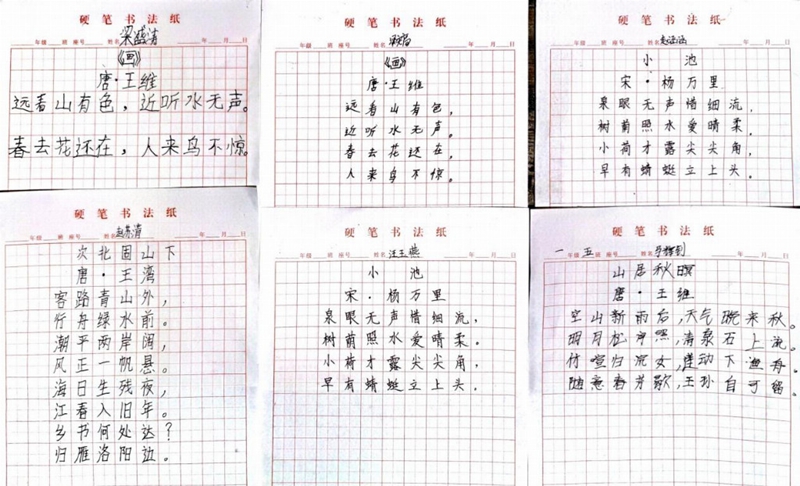 硬笔书法纸
年级 班 座号 姓名 年 月 日
《画》
唐·王维
远看山有色，近听水无声。
春去花还在，人来鸟不惊。
硬笔书法纸
年级 班 座号 姓名 年 月 日
《画》
唐·王维
远看山有色，
近听水无声。
春去花还在，
人来鸟不惊。
硬笔书法纸
年级 班 座号 姓名 年 月 日
小池
宋·杨万里
泉眼无声惜细流，
树荫照水爱晴柔。
小荷才露尖尖角，
早有蜻蜓立上头。
硬笔书法纸
年级 班 座号 姓名 年 月 日
次北固山下
唐·王湾
客路青山外，
行舟绿水前。
潮平两岸阔，
风正一帆悬。
海日生残夜，
江春入旧年。
乡书何处达？
归雁洛阳边。
硬笔书法纸
年级 班 座号 姓名 年 月 日
小池
宋·杨万里
泉眼无声惜细流，
树荫照水爱晴柔。
小荷才露尖尖角，
早有蜻蜓立上头。
硬笔书法纸
一 年级 五 班 座号 姓名 年 月 日
山居秋暝
唐·王维
空山新雨后，天气晚来秋。
明月松间照，清泉石上流。
竹喧归浣女，莲动下渔舟。
随意春芳歇，王孙自可留。